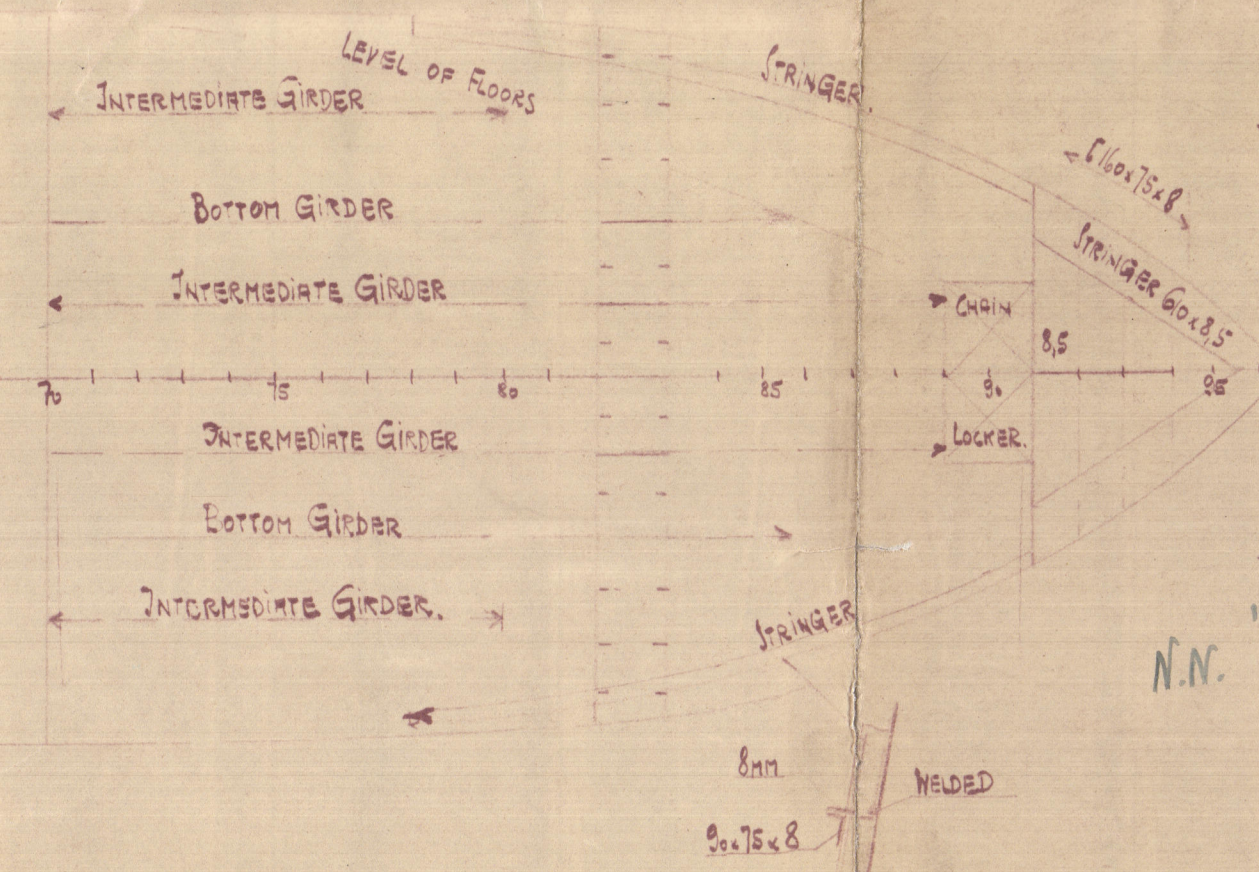 LEVEL OF FLOORS
STRINGER.
INTERMEDIATE GIRDER
[160x75x8
BOTTOM GIRDER
STRINGER 610x8,5
INTERMEDIATE GIRDER
CHAIN
8,5
70 75 80 85 90 95
INTERMEDIATE GIRDER
LOCKER.
BOTTOM GIRDER
INTERMEDIATE GIRDER.
STRINGER
N.N.
8MM
WELDED
90x75x8